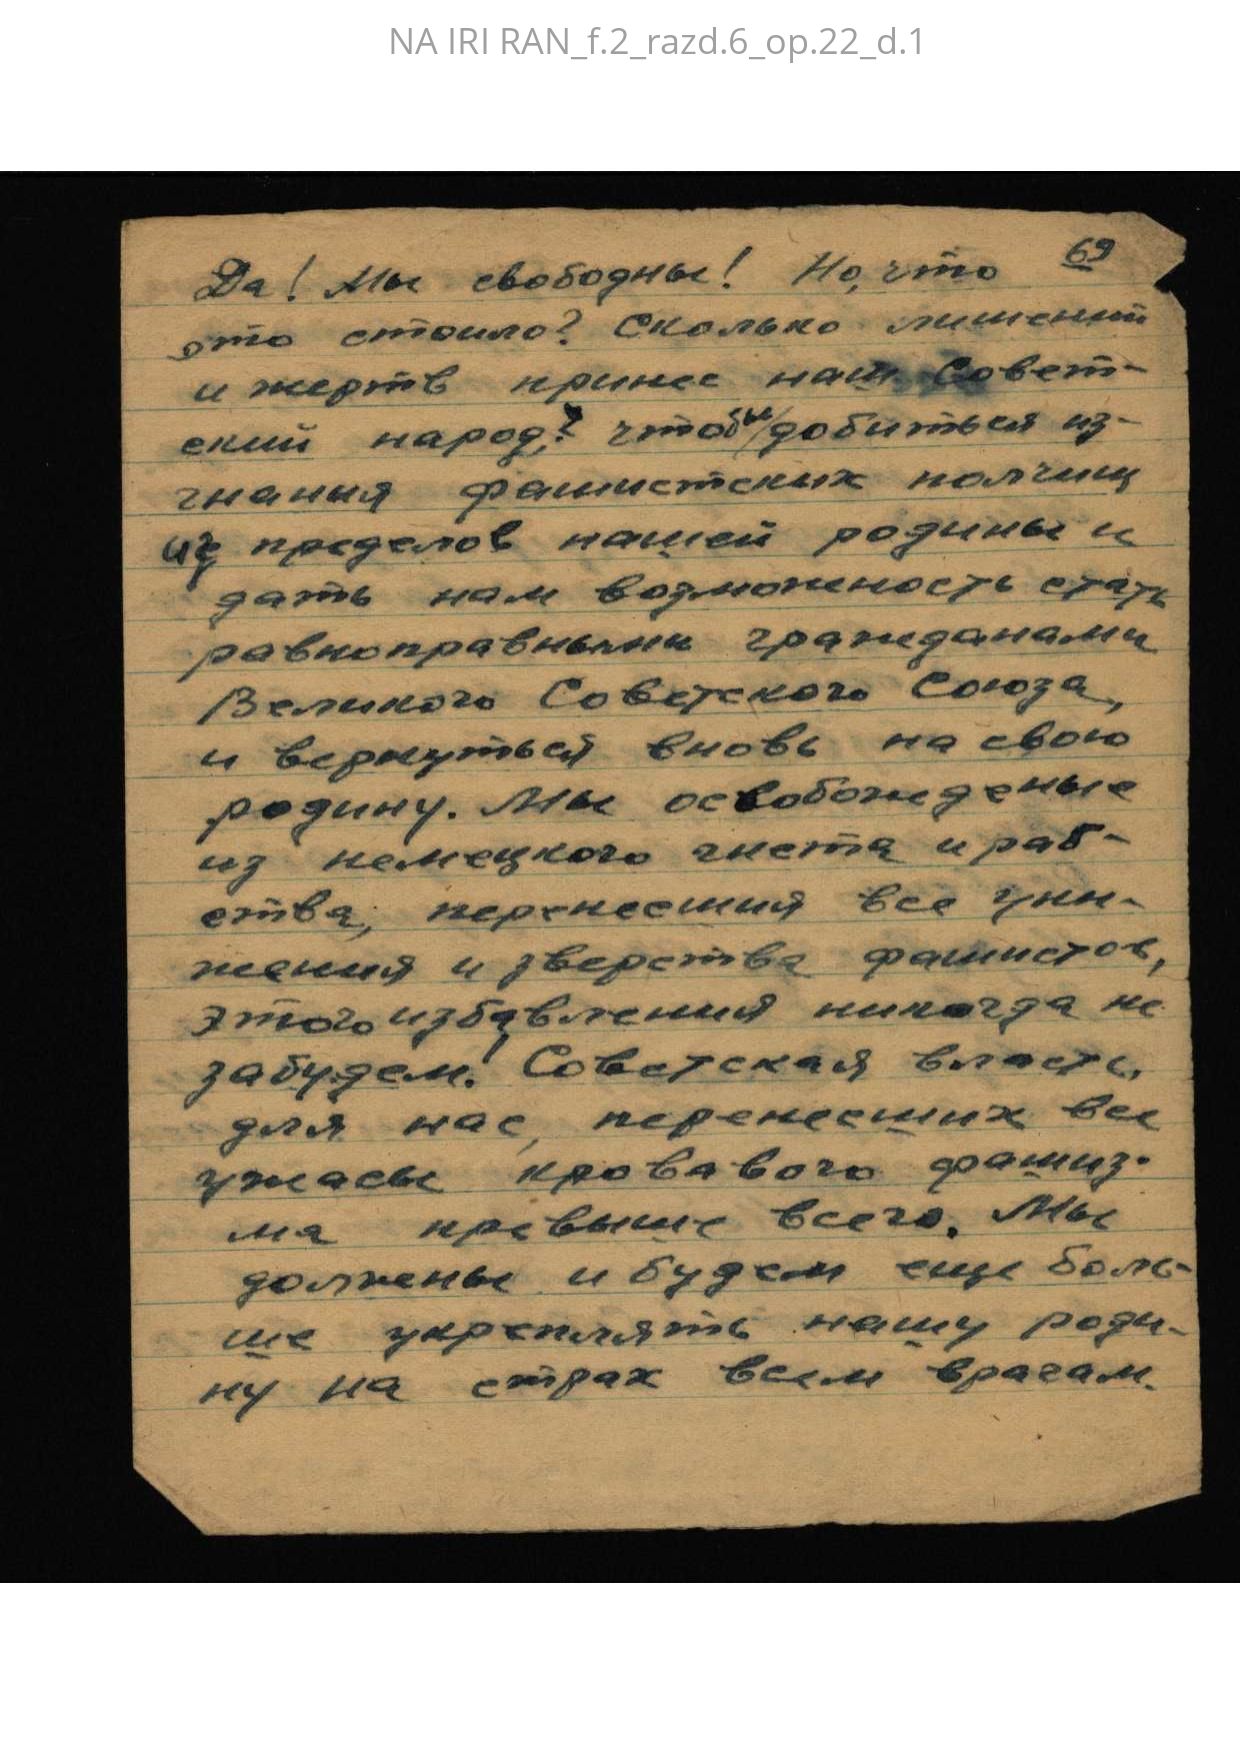 NA IRI RAN_f.2_razd.6_op.22_d.1
69
Да! Мы свободны! Но, что
это стоило? Сколько лишений
и жертв принес наш Совет-
ский народ,? чтобы добиться из-
гнания фашистских полчищ
из пределов нашей родины и
дать нам возможность стать
равноправными гражданами
Великого Советского Союза,
и вернуться вновь на свою
родину. Мы освобожденые
из немецкого гнета и раб-
ства, перенесшия все уни-
жения и зверства фашистов,
этого избавления никогда не
забудем! Советская власть,
для нас, перенесших все
ужасы кровавого фашиз-
ма превыше всего. Мы
должены и будем еще боль-
ше укреплять нашу роди-
ну на страх всем врагам.